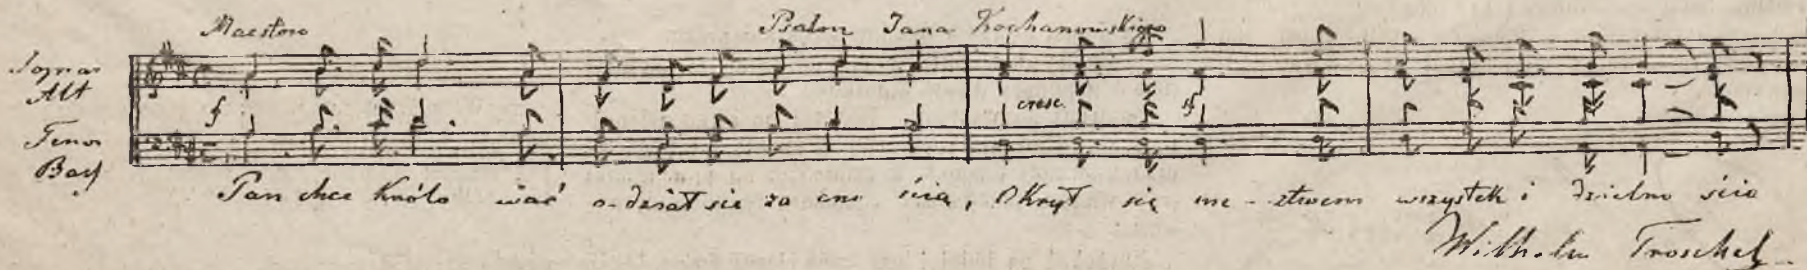 Maestoso
Psalm Jana Kochanowskiego
Sopran
Alt
f
cresc.
sf
Tenor
Bass
Pan chce królo wać o-dział się za cno ścią, Okrył się mę-ztwem wszystek i dzielno ścią
Wilhelm Troschel